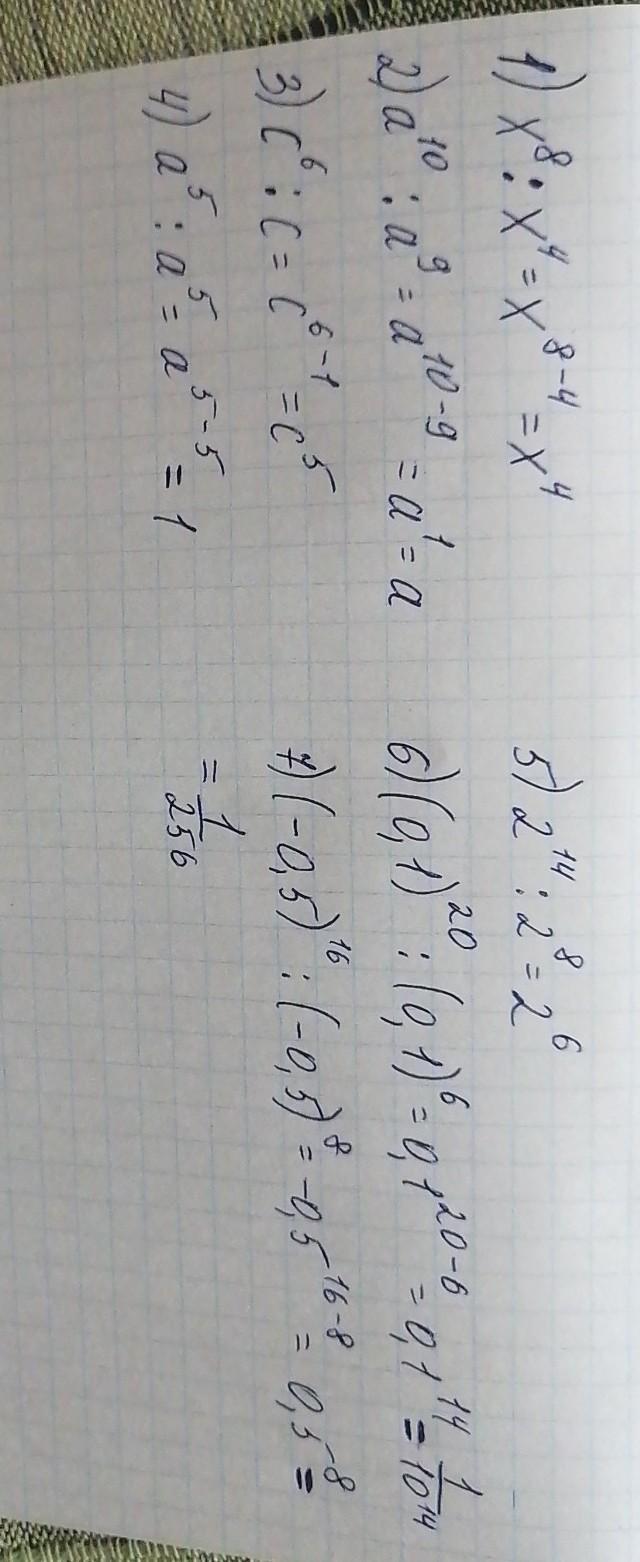 1) x⁸ : x⁴ = x⁸⁻⁴ = x⁴
2) a¹⁰ : a⁹ = a¹⁰⁻⁹ = a¹ = a
3) c⁶ : c = c⁶⁻¹ = c⁵
4) a⁵ : a⁵ = a⁵⁻⁵ = 1
5) 2¹⁴ : 2⁸ = 2⁶
6) (0,1)²⁰ : (0,1)⁶ = 0,1²⁰⁻⁶ = 0,1¹⁴ = 1/10¹⁴
7) (-0,5)¹⁶ : (-0,5)⁸ = -0,5¹⁶⁻⁸ = 0,5⁸ =
= 1/256